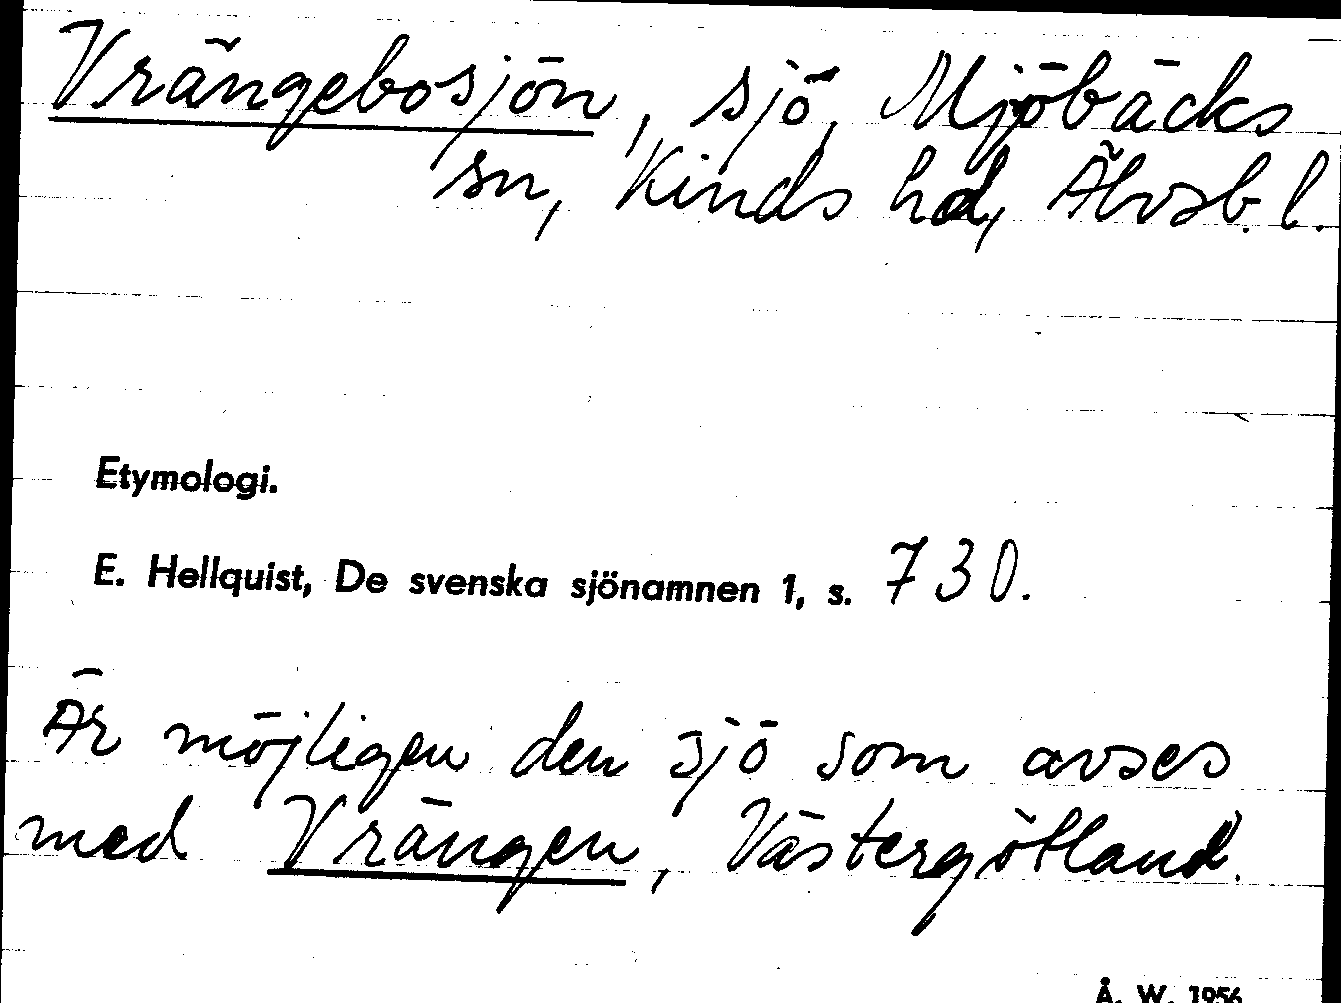 Vrängebosjön, sjö, Mjöbäcks
sn, Kinds hd, Älvsb. l.
Etymologi.
E. Hellquist, De svenska sjönamnen 1, s. 730.
Är möjligen den sjö som avses
med Vrängen, Västergötland.
Å. W. 1956